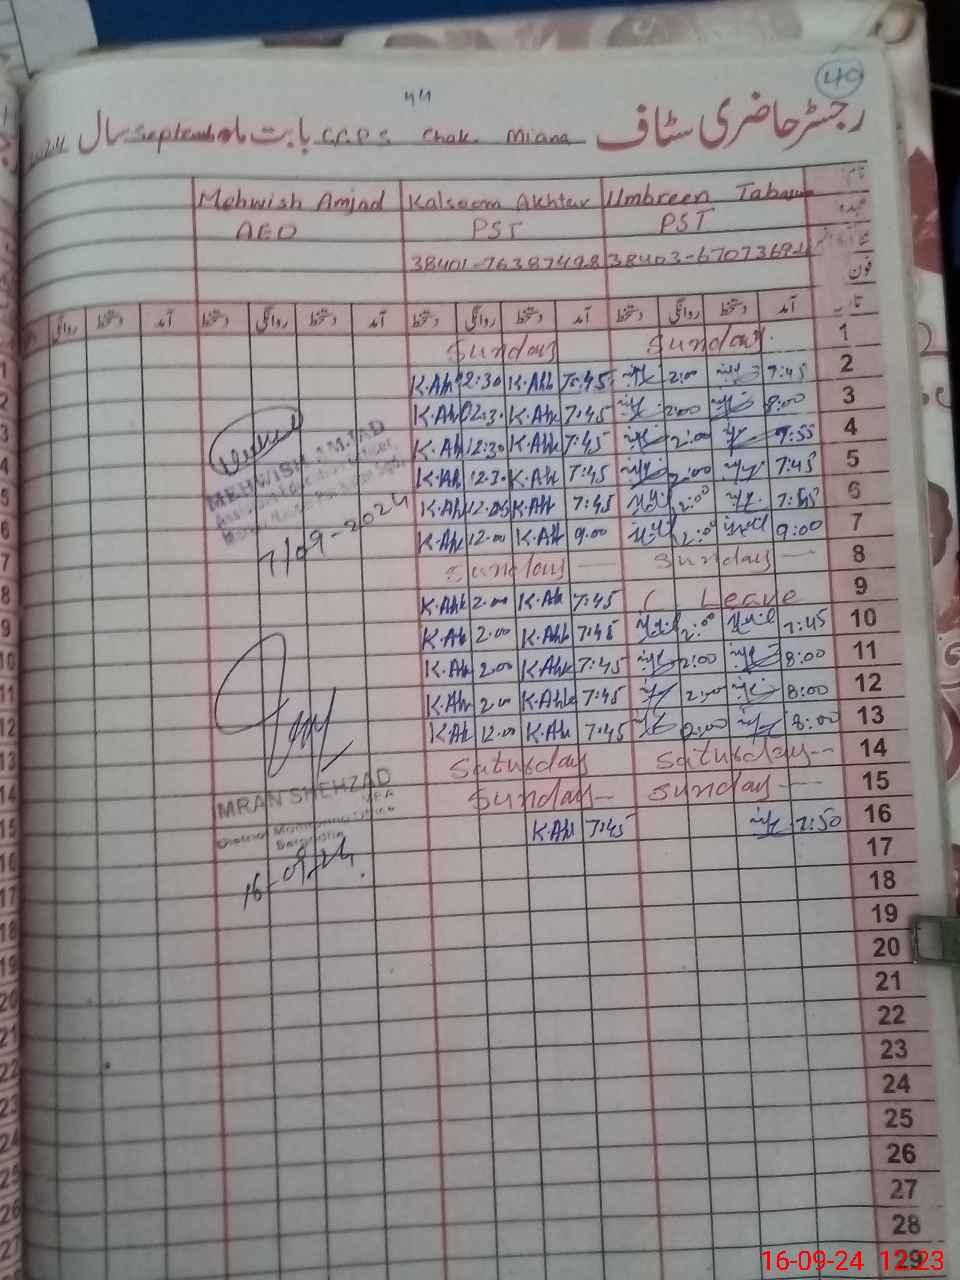 40
44
رجسٹر حاضری سٹاف G.G.P.S Chak Miana بابت ماہ September سال 2024
نام: Umbreen Tabasum Kalsoom Akhtar Mehwish Amjad
عہدہ PST PST AEO
38403-6707369-2 38401-7638749-8
فون
تاریخ آمد دستخط روانگی دستخط آمد دستخط روانگی دستخط آمد دستخط روانگی دستخط آمد دستخط روانگی
1 Sunday Sunday
2 7:45 2:00 7:45 K.Akh 12:30 K.Akh
3 8:00 2:00 7:45 K.Akh 12:30 K.Akh
4 7:55 2:00 7:45 K.Akh 12:30 K.Akh
5 7:45 2:00 7:45 K.Akh 12:30 K.Akh
6 7:45 2:00 7:45 K.Akh 12:05 K.Akh
7 9:00 2:00 9:00 K.Akh 12:00 K.Akh
8 Sunday Sunday
9 Leave 7:45 K.Akh 2:00 K.Akh
10 7:45 2:00 7:45 K.Akh 2:00 K.Akh
11 8:00 2:00 7:45 K.Akh 2:00 K.Akh
12 8:00 2:00 7:45 K.Akh 2:00 K.Akh
13 8:00 7:45 K.Akh 12:00 K.Akh
14 Saturday Saturday
15 Sunday Sunday
16 7:50 7:45 K.Akh
17
18
19
20
21
22
23
24
25
26
27
28
29
MEHWISH AMJAD
7/09-2024
IMRAN SHEHZAD
MEA
District Monitoring Officer
Sargodha
16-09-24
16-09-24 12:23